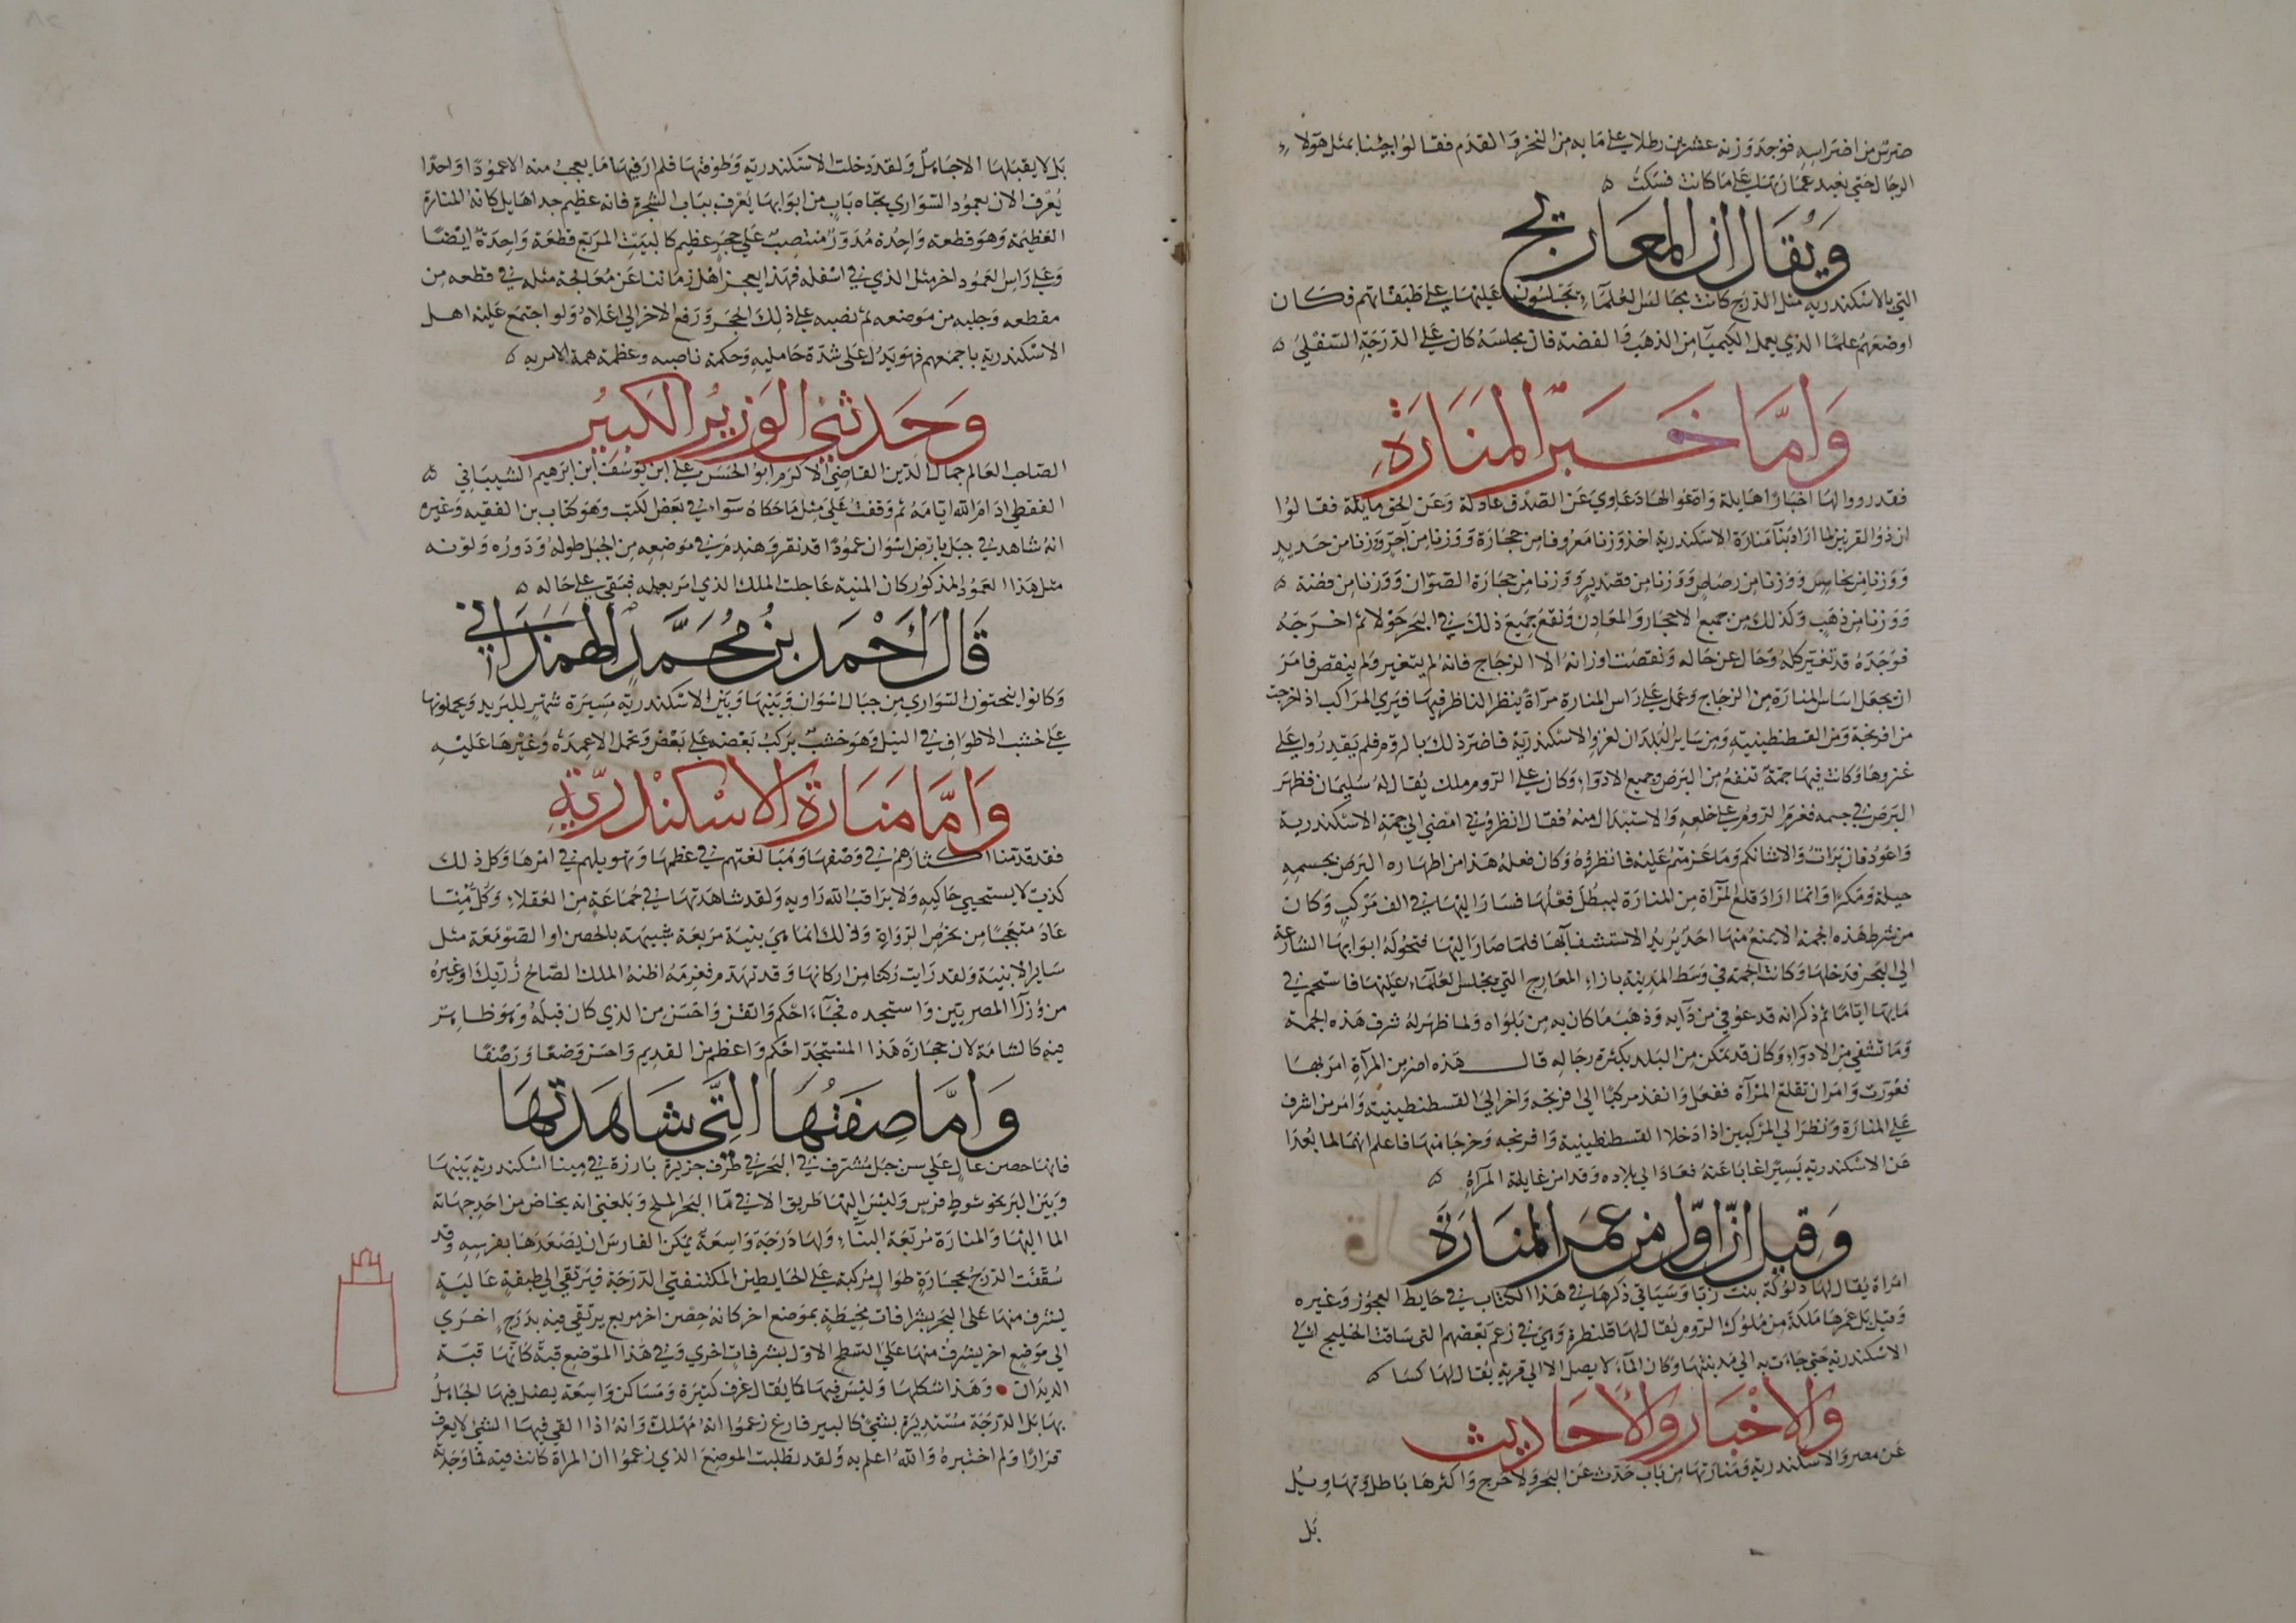 ضرس من اضراسه فوجد وزنه عشرين رطلا على ما به من النخر والقدم فقالوا جيئنا بمثل هولاء
الرجال حتى نعيد عمارتها على ما كانت فسكت
ويقال ان المعاريج
التي بالاسكندرية مثل الدرج كانت مجالس العلماء يجلسون عليها على طبقاتهم فكان
اوضعهم علما الذي يعمل الكيميا من الذهب والفضة فان مجلسه كان على الدرجة السفلى
واما خبر المنارة
فقد رووا لها اخبارا هايلة وادعوا لها دعاوي عن الصدق عادلة وعن الحق مايلة فقالوا
ان ذو القرنين لما اراد بنا منارة الاسكندرية اخذ وزنا معروفا من حجارة ووزنا من آجر ووزنا من حديد
ووزنا من نحاس ووزنا من رصاص ووزنا من قصدير ووزنا من حجارة الصوان ووزنا من فضة
ووزنا من ذهب وكذلك من جميع الاحجار والمعادن ونقع جميع ذلك في البحر حولا ثم اخرجه
فوجده قد تغير كله وحال عن حاله ونقصت اوزانه الا الزجاج فانه لم يتغير ولم ينقص فامر
ان يجعل اساس المنارة من الزجاج وعمل على راس المنارة مرآة ينظر الناظر فيها فيرى المراكب اذا خرجت
من افرنجة ومن القسطنطينية ومن ساير البلدان لغزو الاسكندرية فاضر ذلك بالروم فلم يقدروا على
غزوها وكانت فيها حمة تنفع من البرص وجميع الادواء وكان على الروم ملك يقال له سليمان فظهر
البرص في جسمه فعزم الروم على خلعه والاستبدال منه فقال انظروني امضي الى حمة الاسكندرية
واعود فان برات والا شانكم وما عزمتم عليه فانظروه وكان فعله هذا من اظهاره البرص بجسمه
حيلة ومكرا وانما اراد قلع المرآة من المنارة ليبطل فعلها فسار اليها في الف مركب وكان
من شرط هذه الحمة الا يمنع منها احد يريد الاستشفا بها فلما صار اليها فتحوا له ابوابها الشارعة
الى البحر فدخلها وكانت الحمة في وسط المدينة بازاء المعاريج التي يجلس العلماء عليها فاستحم في
مايها اياما ثم ذكر انه قد عوفي من دايه وذهب ما كان به من بلواه ولما ظهر له شرف هذه الحمة
وما تشفي من الادواء وكان قد تمكن من البلد بكثرة رجاله قال هذه اضر من المرآة امر بها
فغورت وامر ان تقلع المرآة ففعل وانفذ مركبا الى افرنجه واخر الى القسطنطينية وامر من اشرف
على المنارة ونظر الى المركبين اذا دخلا القسطنطينية وافرنجه وخرجا منها فاعلم انهما لما بعدا
عن الاسكندرية يسيرا غابا عنه فعاد الى بلاده وقد امن غايلة المرآة
وقيل ان اول من عمر المنارة
امراة يقال لها دلوكة بنت ربا وسياتي ذكرها في هذا الكتاب في حايط العجوز وغيره
وقيل بل عمرها ملكة من ملوك الروم يقال لها قلنطرة وهي في زعم بعضهم التي ساقت الخليج الى
الاسكندرية حتى جاءت به الى مدينتها وكان الماء لا يصل الا الى قرية يقال لها كسا
والاخبار والاحاديث
عن مصر والاسكندرية ومنارتها من باب حدث عن البحر ولا حرج واكثرها باطل وتهاويل
بل
بل لا يقبلها الا جاهل ولقد دخلت الاسكندرية وطوفتها فلم ار فيها ما يعجب منه الا عمودا واحدا
يعرف الان بعمود السواري تجاه باب من ابوابها يعرف بباب الشجرة فانه عظيم جدا هايل كانه المنارة
العظيمة وهو قطعة واحدة مدور منتصب على حجر عظيم كالبيت المربع قطعة واحدة ايضا
وعلى راس العمود اخر مثل الذي في اسفله فهذا يعجز اهل زماننا عن معالجة مثله في قطعه من
مقطعه وجلبه من موضعه ثم نصبه على ذلك الحجر ورفع الاخر الى اعلاه ولو اجتمع عليه اهل
الاسكندرية باجمعهم فهو يدل على شدة حامليه وحكمة ناصبيه وعظمة همة الامر به
وحدثني الوزير الكبير
الصاحب العالم جمال الدين القاضي الاكرم ابو الحسن على ابن يوسف ابن ابرهيم الشيباني
القفطي ادام الله ايامه ثم وقفت على مثل ما حكاه سواء في بعض الكتب وهو كتاب بن الفقيه وغيره
انه شاهد في جبل بارض اسوان عمودا قد نقر وهندم في موضعه من الجبل طوله ودوره ولونه
مثل هذا العمود المذكور كان المنية عاجلت الملك الذي امر بعمله فبقي على حاله
قال أحمد بن محمد الهمذاني
وكانوا ينحتون السواري من جبال اسوان وبينها وبين الاسكندرية مسيرة شهر للبريد ويحملونها
على خشب الاطواف في النيل وهو خشب يركب بعضه على بعض وتحمل الاعمدة وغيرها عليه
واما منارة الاسكندرية
فقد قدمنا اكثارهم في وصفها ومبالغتهم في عظمها وتهويلهم في امرها وكل ذلك
كذب لا يستحيي حاكيه ولا يراقب الله راويه ولقد شاهدتها في جماعة من العقلاء وكل منا
عاد متعجبا من تخرص الرواة وذلك انما هي بنية مربعة شبيهة بالحصن او الصومعة مثل
ساير الابنية ولقد رايت ركنا من اركانها وقد تهدم فغرمه اظنه الملك الصالح رزيك او غيره
من وزرا المصريين واستجده فجاء احكم واتقن واحسن من الذي كان قبله وهو ظاهر
فيه كالشامة لان حجارة هذا المستجد احكم واعظم من القديم واحسن وضعا ورصفا
واما صفتها التي شاهدتها
فانها حصن عال على سن جبل مشرف في البحر في طرف جزيرة بارزة في مينا اسكندرية بينها
وبين البر نحو شوط فرس وليس اليها طريق الا في ما البحر الملح وبلغني انه يخاض من احد جهاته
الما اليها والمنارة مربعة البناء ولها درجة واسعة يمكن الفارس ان يصعدها بفرسه وقد
سقفت الدرج بحجارة طوال مركبة على الحايطين المكتنفتي الدرجة فيرتقي الى طبقة عالية
يشرف منها على البحر بشرافات محيطة بموضع اخر كانه حصن اخر مربع يرتقي فيه بدرج اخرى
الى موضع اخر يشرف منها على السطح الاول بشرفات اخرى وفي هذا الموضع قبة كانها قبة
الديدبان وهذا شكلها وليس فيها كما يقال غرف كثيرة ومساكن واسعة يضل فيها الجاهل
بها بل الدرجة مستديرة بشيء كالبير فارغ زعموا انه مهلك وانه اذا القي فيها الشيء لا يعرف
قرارا ولم اختبره والله اعلم به ولقد تطلبت الموضع الذي زعموا ان المراة كانت فيه فما وجدته